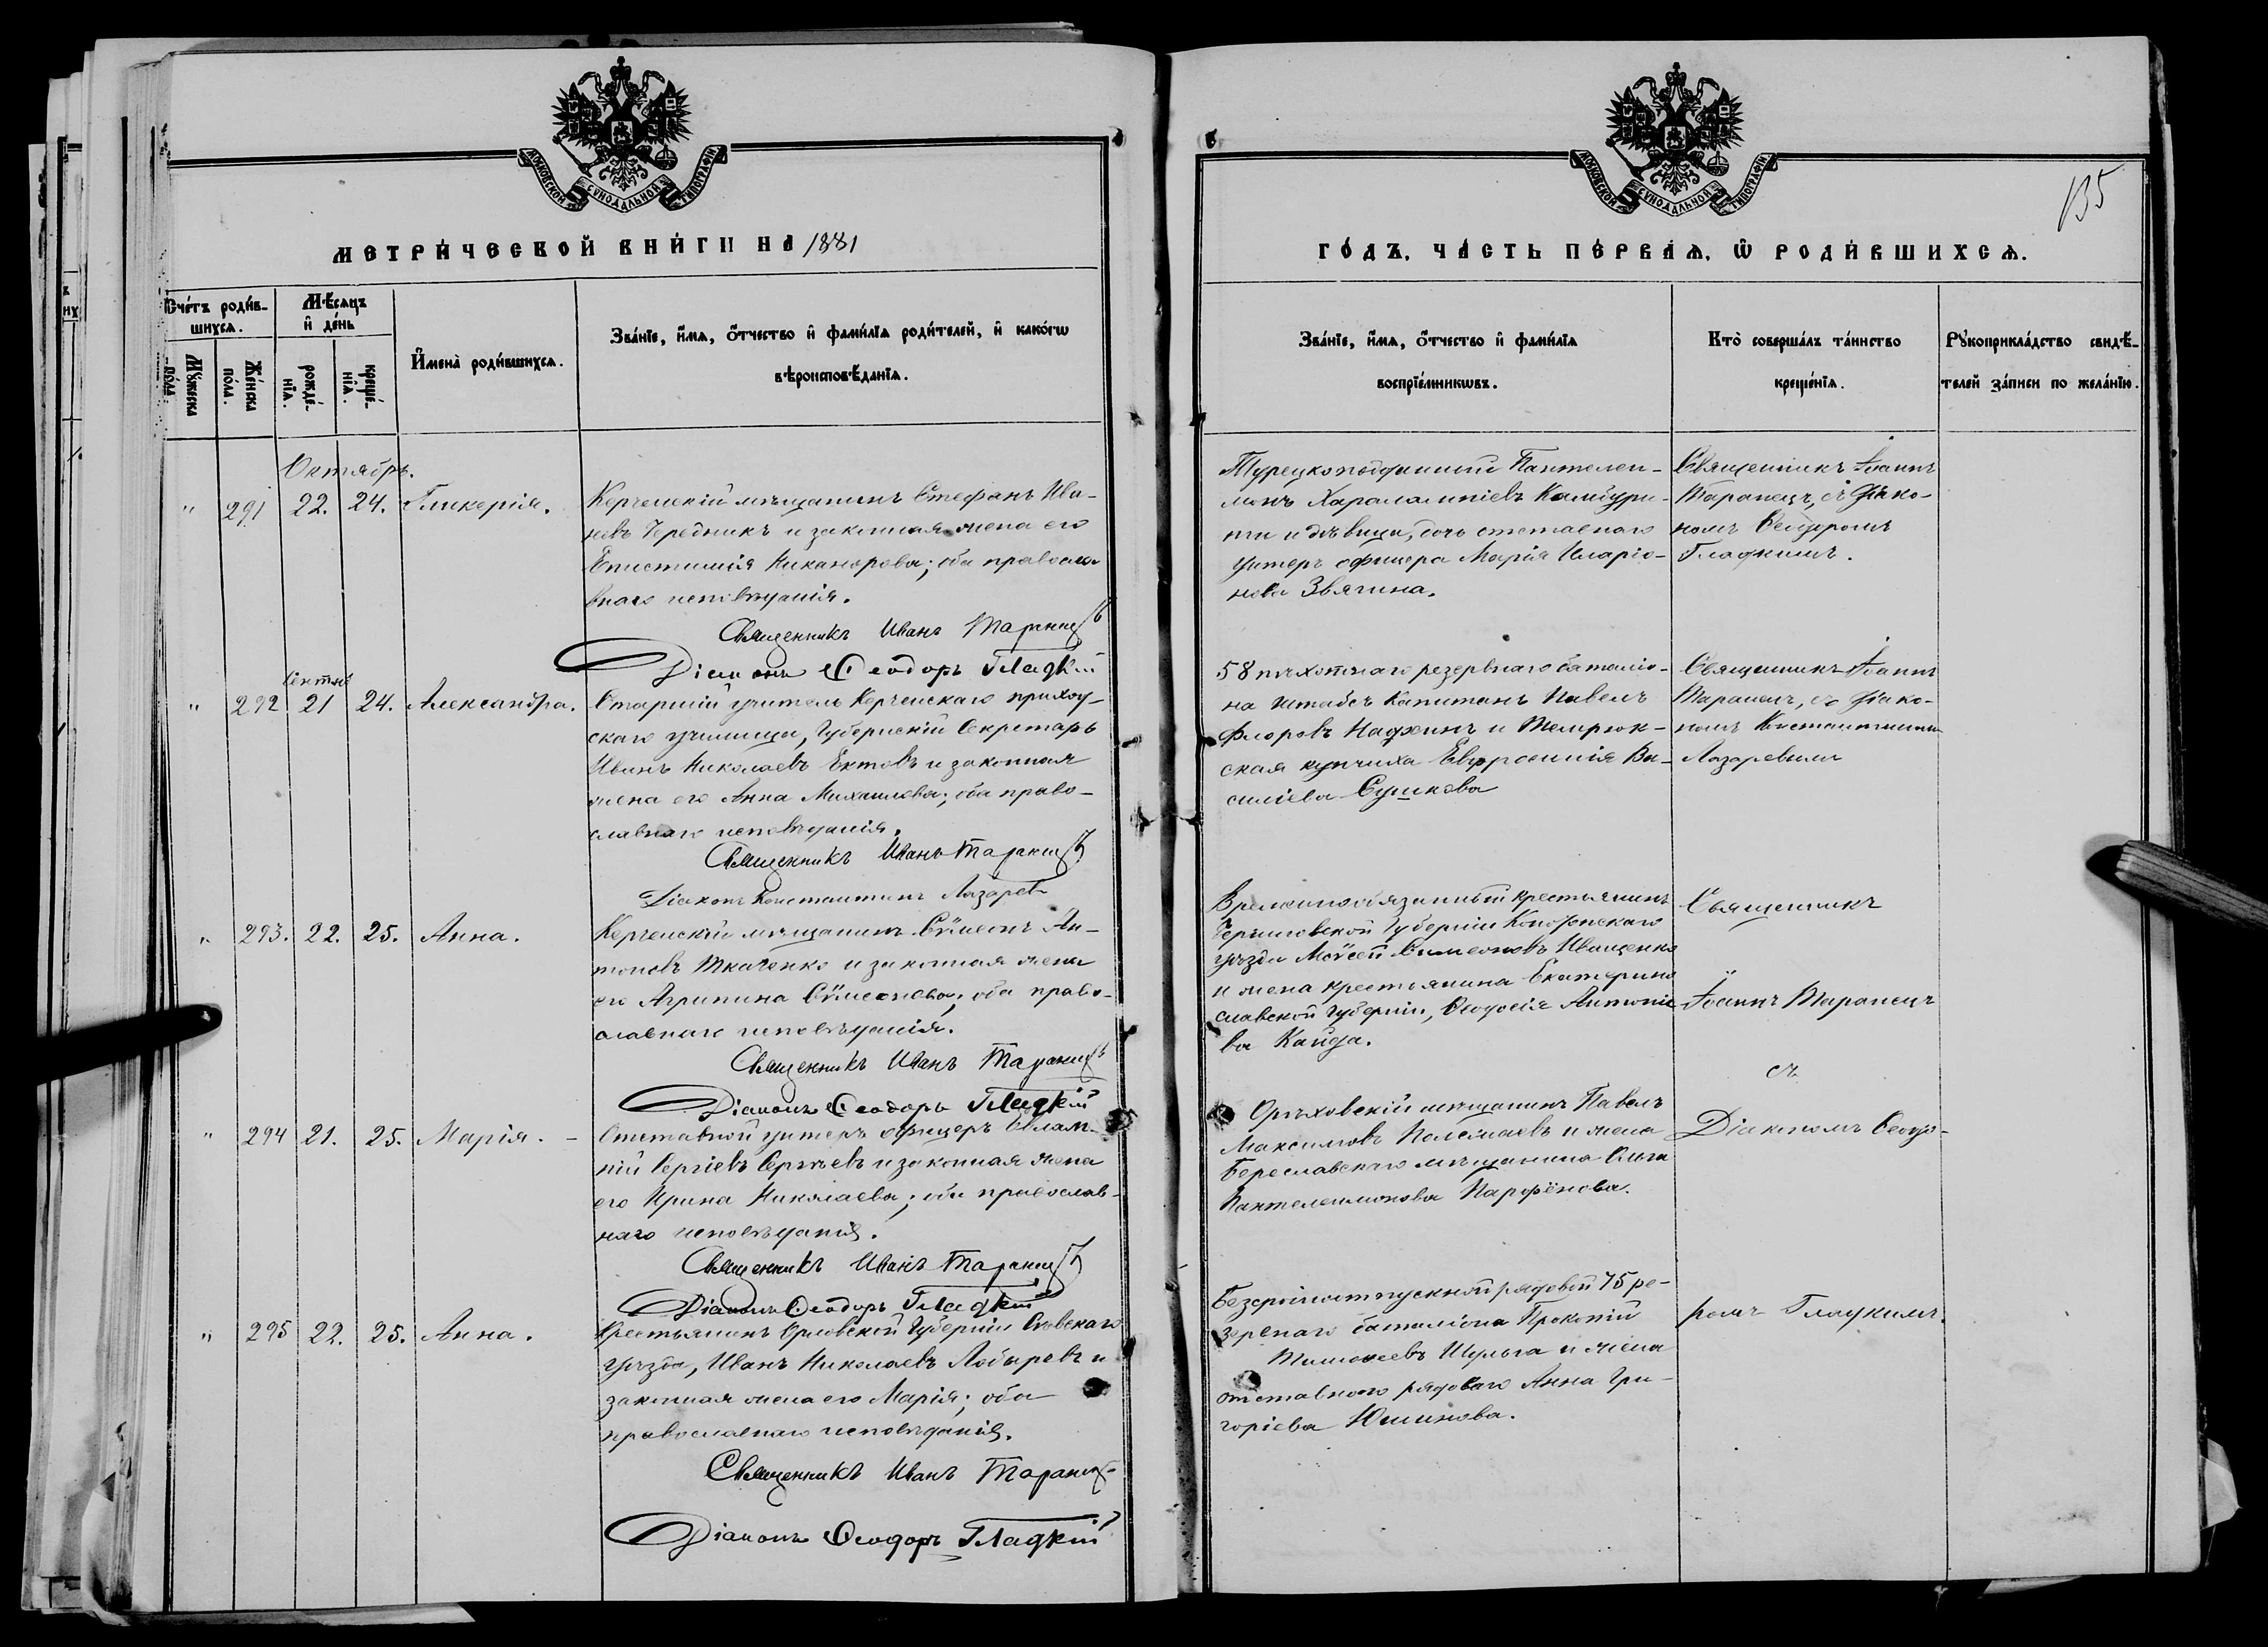 МОСКОВСКОЙ СѴНОДАЛЬНОЙ ТИПОГРАФІИ
МЕТРИ́ЧЕСКОЙ КНИ́ГИ НА 1881
Сче́тъ роди́в-
шихсѧ.
Мѣ́сѧцъ
и҆ де́нь
Мꙋ́жеска
по́ла.
Же́нска
по́ла.
рожде́-
нїѧ.
креще́-
нїѧ.
И҆мена̀ роди́вшихсѧ.
Зва́нїе, и҆́мѧ, ѻ҆́тчество и҆ фами́лїѧ роди́телей, и҆ како́гѡ
вѣроисповѣ́данїѧ.
Октябрь.
" 291 22. 24. Гликерія.
Керченскій мѣщанинъ Стефанъ Ива-
новъ Чередникъ и законная жена его
Епистимія Никанорова; оба правосла-
внаго исповѣданія.
Священникъ Иванъ Таранецъ
Діаконъ Ѳеодоръ Гладкій
" 292 21 24. Александра.
Старшій учитель Керченскаго приход-
скаго училища, Губернскій Секретарь
Иванъ Николаевъ Ектовъ и законная
жена его Анна Михаилова; оба право-
славнаго исповѣданія.
Священникъ Иванъ Таранецъ
Діаконъ Константинъ Лазарев
" 293. 22. 25. Анна.
Керченскій мѣщанинъ Сѷмеонъ Ан-
тоновъ Ткаченко и законная жена
его Агрипина Сѷмеонова; оба право-
славнаго исповѣданія.
Священникъ Иванъ Таранецъ
Діаконъ Ѳеодоръ Гладкій
" 294 21. 25. Марія. -
Отставной унтеръ офицеръ Евлам-
пій Сергіевъ Сергѣевъ и законная жена
его Ирина Николаева; оба православ-
наго исповѣданія.
Священникъ Иванъ Таранецъ
Діаконъ Ѳеодоръ Гладкій
" 295 22. 25. Анна.
Крестьянинъ Орловской Губерніи Сѣвскаго
уѣзда, Иванъ Николаевъ Лобыревъ и
законная жена его Марія; оба
православнаго исповѣданія.
Священникъ Иванъ Таранецъ
Діаконъ Ѳеодоръ Гладкій
МОСКОВСКОЙ СѴНОДАЛЬНОЙ ТИПОГРАФІИ
135
ГО́ДЪ, ЧА́СТЬ ПЕ́РВАѦ, Ѡ҆ РОДИ́ВШИХСѦ.
Зва́нїе, и҆́мѧ, ѻ҆́тчество и҆ фами́лїѧ
воспрїе́мникѡвъ.
Кто̀ соверша́лъ та́инство
креще́нїѧ.
Рꙋкоприкла́дство свидѣ́-
телей за́писи по жела́нїю.
Турецкоподданный Пантелеи-
монъ Харалампіевъ Камбури-
ти и дѣвица, дочь отставнаго
унтеръ офицера Марія Иларіо-
нова Звягина.
Священникъ Іоаннъ
Таранецъ, съ Діако-
номъ Ѳеодоромъ
Гладкимъ.
58 пѣхотнаго резервнаго баталіо-
на Штабсъ Капитанъ Павелъ
Флоровъ Надеинъ и Темрюк-
ская купчиха Евфросинія Ва-
силіева Сушкова
Священникъ Іоаннъ
Таранецъ, съ Діако-
номъ Константиномъ
Лазаревымъ
Временнообязанный крестьянинъ
Черниговской Губерніи Конотопскаго
уѣзда Моѷсей Симеоновъ Иващенко
и жена крестьянина Екатерино
славской Губерніи, Ѳеодосія Антоніе
ва Кайда.
Священникъ
Іоаннъ Таранецъ
съ
Діакономъ Ѳеодо-
ромъ Гладкимъ.
Орѣховскій мѣщанинъ Павелъ
Максимовъ и жена
Бериславскаго мѣщанина Ольга
Пантелеимонова Парфёнова.
Безсрочноотпускной рядовой 75 ре-
зервнаго баталіона Прокопій
Тимоѳеевъ Шульга и жена
отставнаго рядоваго Анна Гри-
горіева Юшинова.